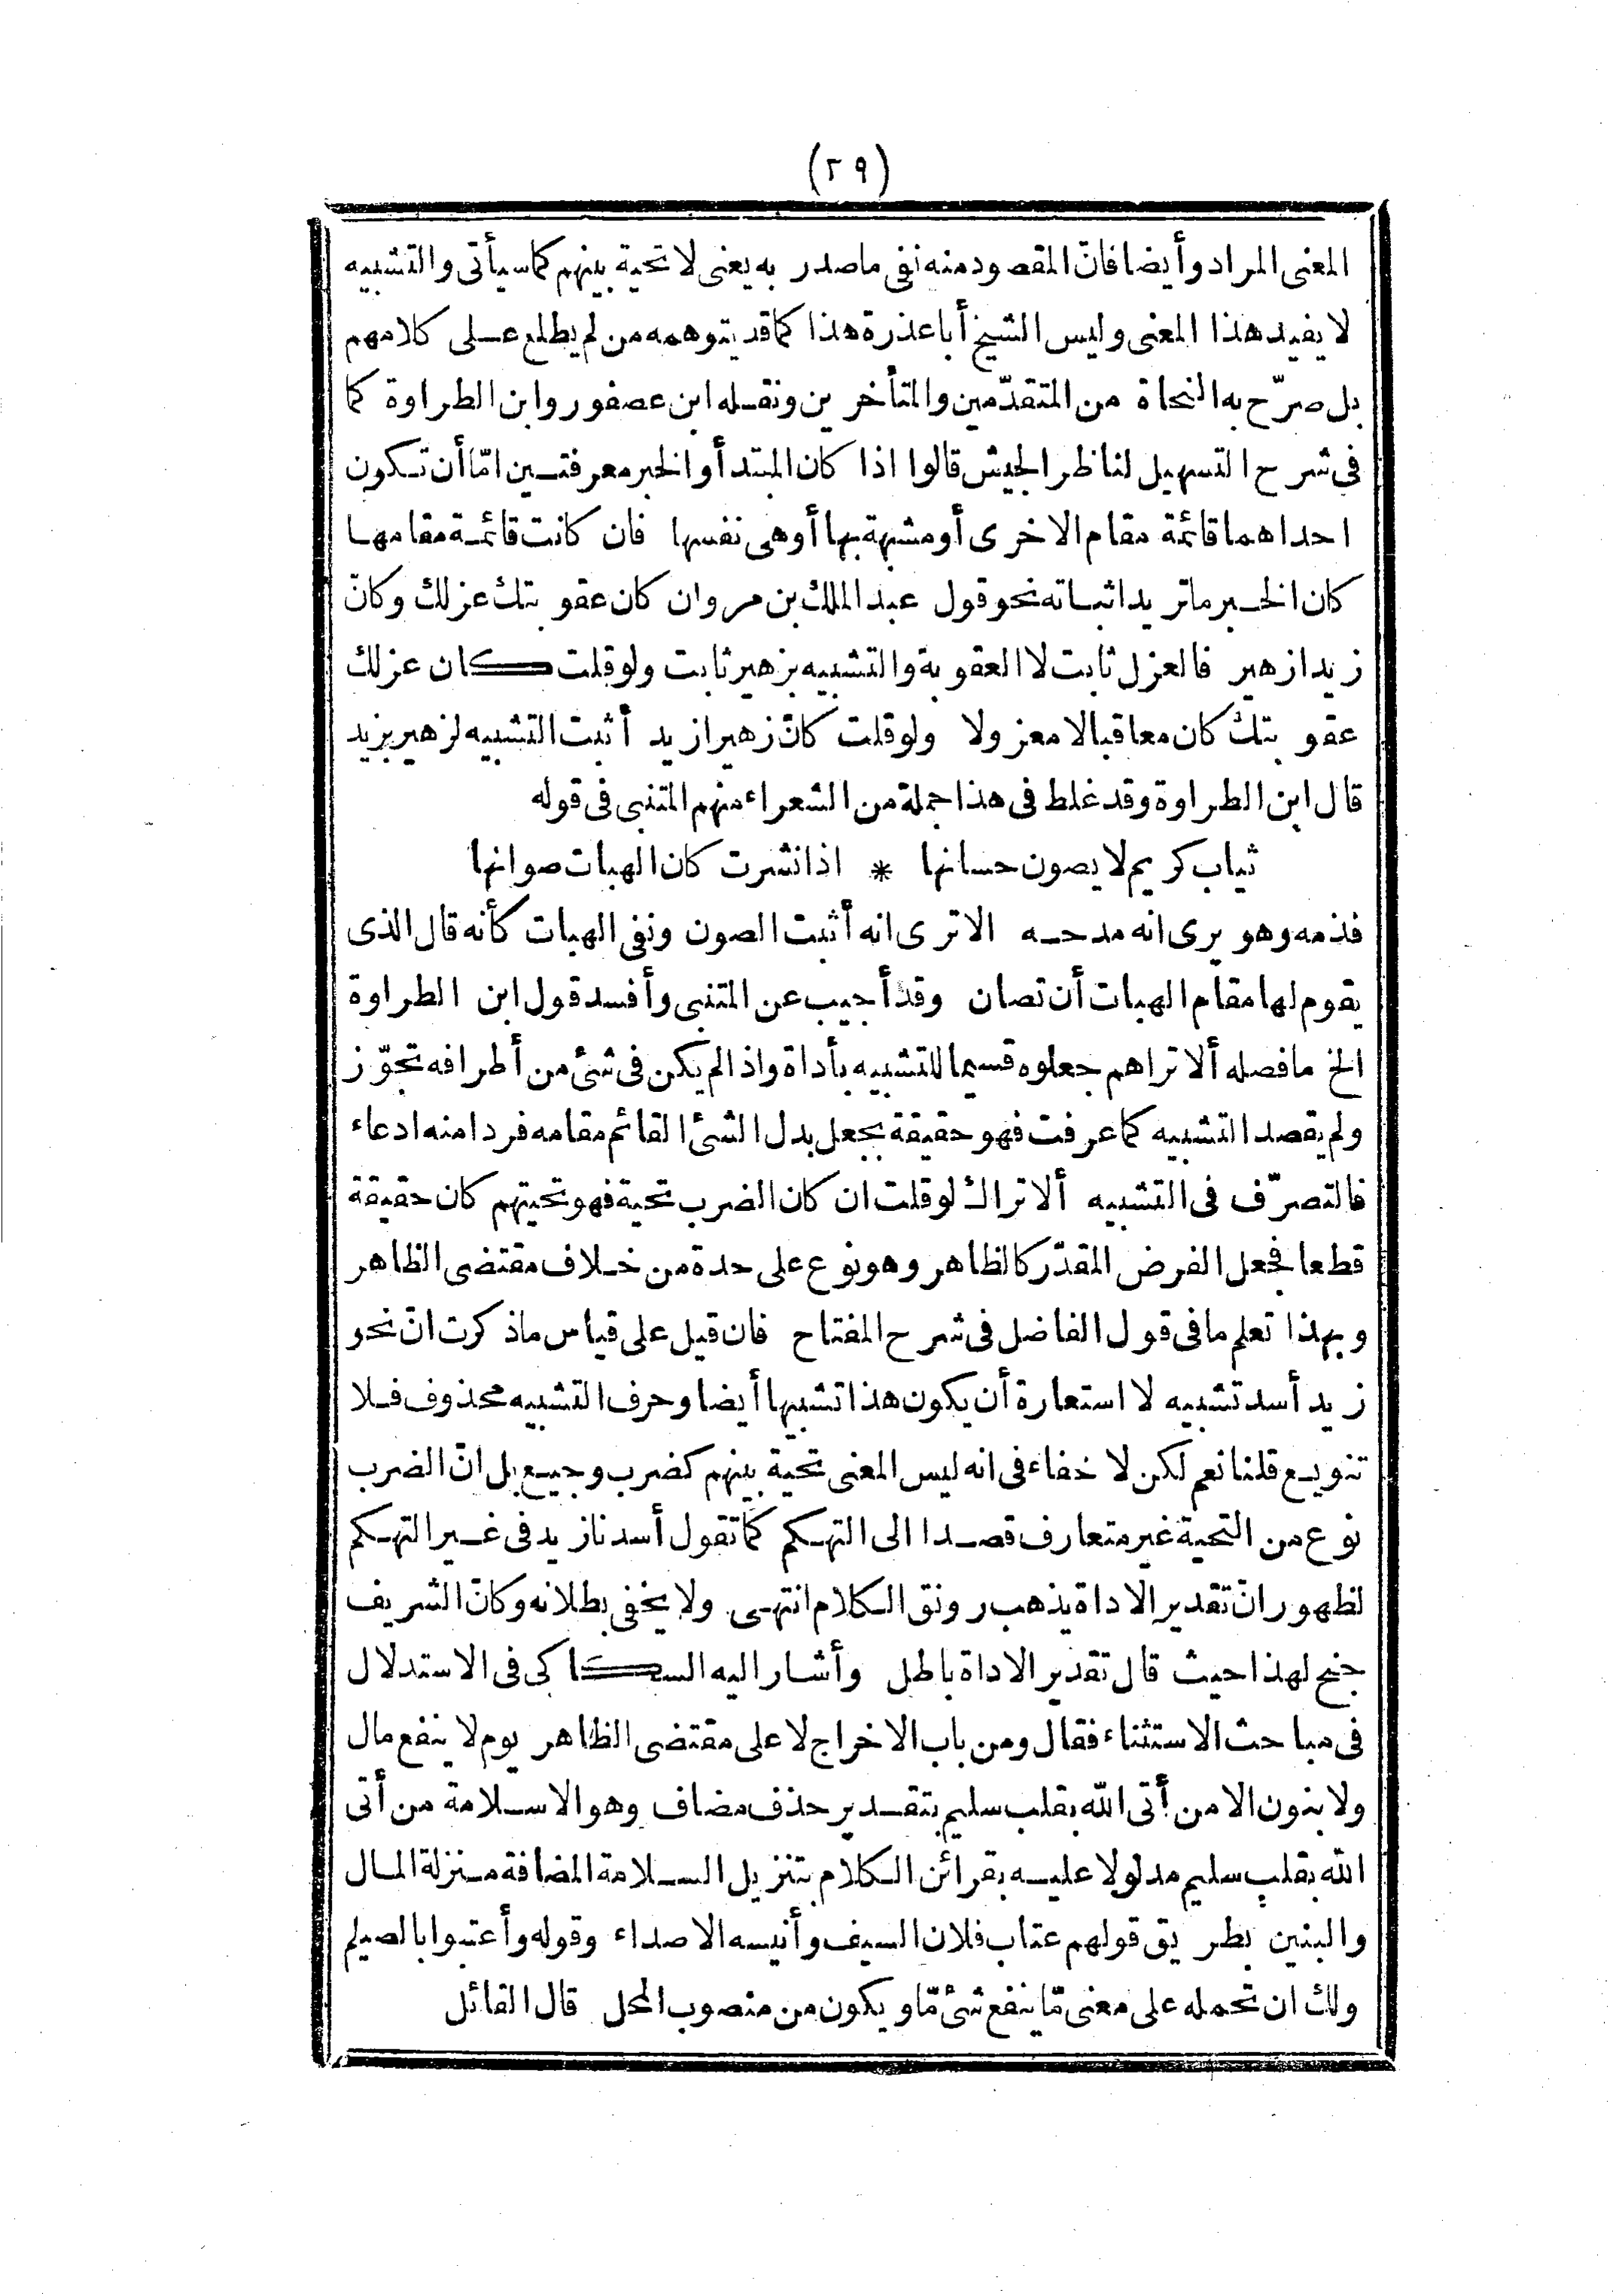 (٢٩)
المعنى المراد وأيضا فانّ المقصود منه نفى ماصدر به يعنى لا تحية بينهم كما سيأتى والتشبيه
لا يفيد هذا المعنى وليس الشيخ أبا عذرة هذا كما قد يتوهمه من لم يطلع على كلامهم
بل صرّح به النحاة من المتقدّمين والمتأخرين ونقله ابن عصفور وابن الطراوة كما
فى شرح التسهيل لناظر الجيش قالوا اذا كان المبتدأ والخبر معرفتين امّا أن تكون
احداهما قائمة مقام الاخرى أو مشبهة بها أو هى نفسها فان كانت قائمة مقامها
كان الخبر ماتريد اثباته نحو قول عبد الملك بن مروان كان عقوبتك عزلك وكانّ
زيدا زهير فالعزل ثابت لا العقوبة والتشبيه بزهير ثابت ولو قلت كان عزلك
عقوبتك كان معاقبا لا معزولا ولو قلت كانّ زهيرا زيد أثبت التشبيه لزهير بزيد
قال ابن الطراوة وقد غلط فى هذا جملة من الشعراء منهم المتنبى فى قوله
ثياب كريم لا يصون حسانها * اذا نشرت كان الهبات صوانها
فذمه وهو يرى انه مدحه الاترى انه أثبت الصون ونفى الهبات كأنه قال الذى
يقوم لها مقام الهبات أن تصان وقد أجيب عن المتنبى وأفسد قول ابن الطراوة
الخ مافصله ألا تراهم جعلوه قسيما للتشبيه بأداة واذا لم يكن فى شئ من أطرافه تجوّز
ولم يقصد التشبيه كما عرفت فهو حقيقة بجعل بدل الشئ القائم مقامه فردا منه ادعاء
فالتصرّف فى التشبيه ألا تراك لو قلت ان كان الضرب تحية فهو تحيتهم كان حقيقة
قطعا فجعل الفرض المقدّر كالظاهر وهو نوع على حدة من خلاف مقتضى الظاهر
وبهذا تعلم مافى قول الفاضل فى شرح المفتاح فان قيل على قياس ماذكرت انّ نحو
زيد أسد تشبيه لا استعارة أن يكون هذا تشبيها أيضا وحرف التشبيه محذوف فلا
تنويع قلنا نعم لكن لا خفاء فى انه ليس المعنى تحية بينهم كضرب وجيع بل انّ الضرب
نوع من التحية غير متعارف قصدا الى التهكم كما تقول أسدنا زيد فى غير التهكم
لظهور انّ تقدير الاداة يذهب رونق الكلام انتهى ولا يخفى بطلانه وكانّ الشريف
جنح لهذا حيث قال تقدير الاداة باطل وأشار اليه السكاكى فى الاستدلال
فى مباحث الاستثناء فقال ومن باب الاخراج لا على مقتضى الظاهر يوم لا ينفع مال
ولا بنون الا من أتى الله بقلب سليم بتقدير حذف مضاف وهو الاسلامة من أتى
الله بقلب سليم مدلولا عليه بقرائن الكلام بتنزيل السلامة المضافة منزلة المال
والبنين بطريق قولهم عتاب فلان السيف وأنيسه الاصداء وقوله وأعتبوا بالصيلم
ولك ان تحمله على معنى مّا ينفع شئ مّا ويكون من منصوب المحل قال القائل